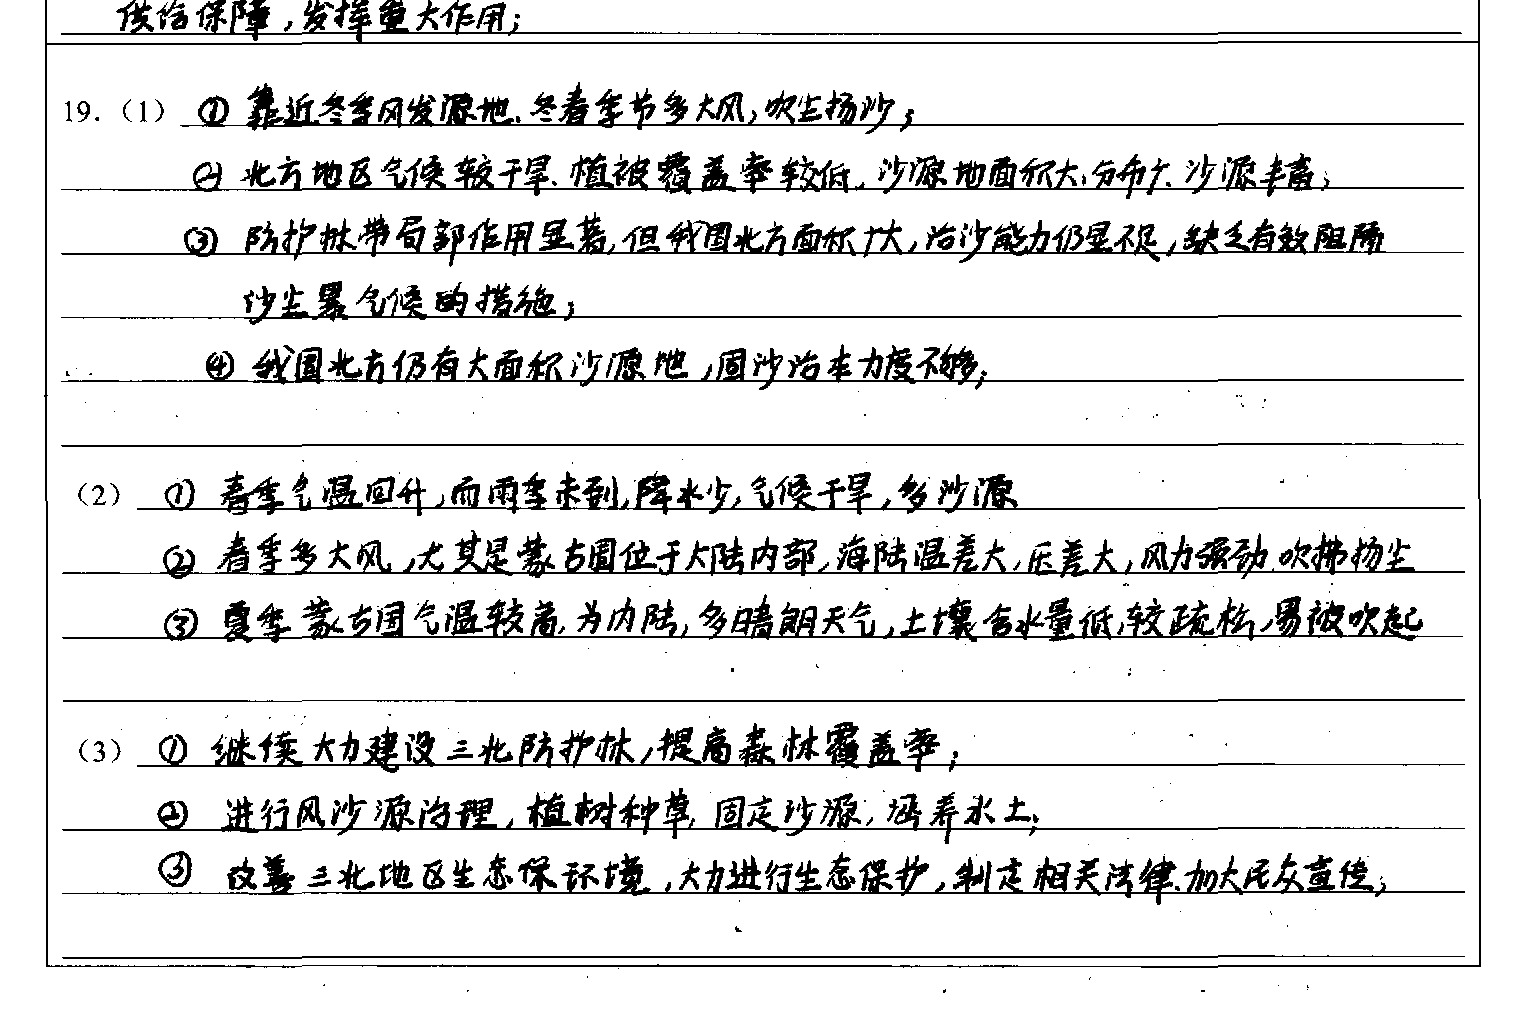 供给保障,发挥重大作用;
19.(1) ① 靠近冬季风发源地、冬春季节多大风,吹尘扬沙;
② 北方地区气候较干旱、植被覆盖率较低,沙源地面积大、分布广、沙源丰富;
③ 防护林带局部作用显著,但我国北方面积广大,治沙能力仍显不足,缺乏有效阻隔
沙尘暴气候的措施;
④ 我国北方仍有大面积沙源地,固沙治本力度不够;
(2) ① 春季气温回升,而雨季未到,降水少,气候干旱,多沙源
② 春季多大风,尤其是蒙古国位于大陆内部,海陆温差大,压差大,风力强劲,吹拂扬尘
③ 夏季蒙古国气温较高,为内陆,多晴朗天气,土壤含水量低,较疏松,易被吹起
(3) ① 继续大力建设三北防护林,提高森林覆盖率;
② 进行风沙源治理,植树种草,固定沙源,涵养水土;
③ 改善三北地区生态保环境,大力进行生态保护,制定相关法律、加大民众宣传;